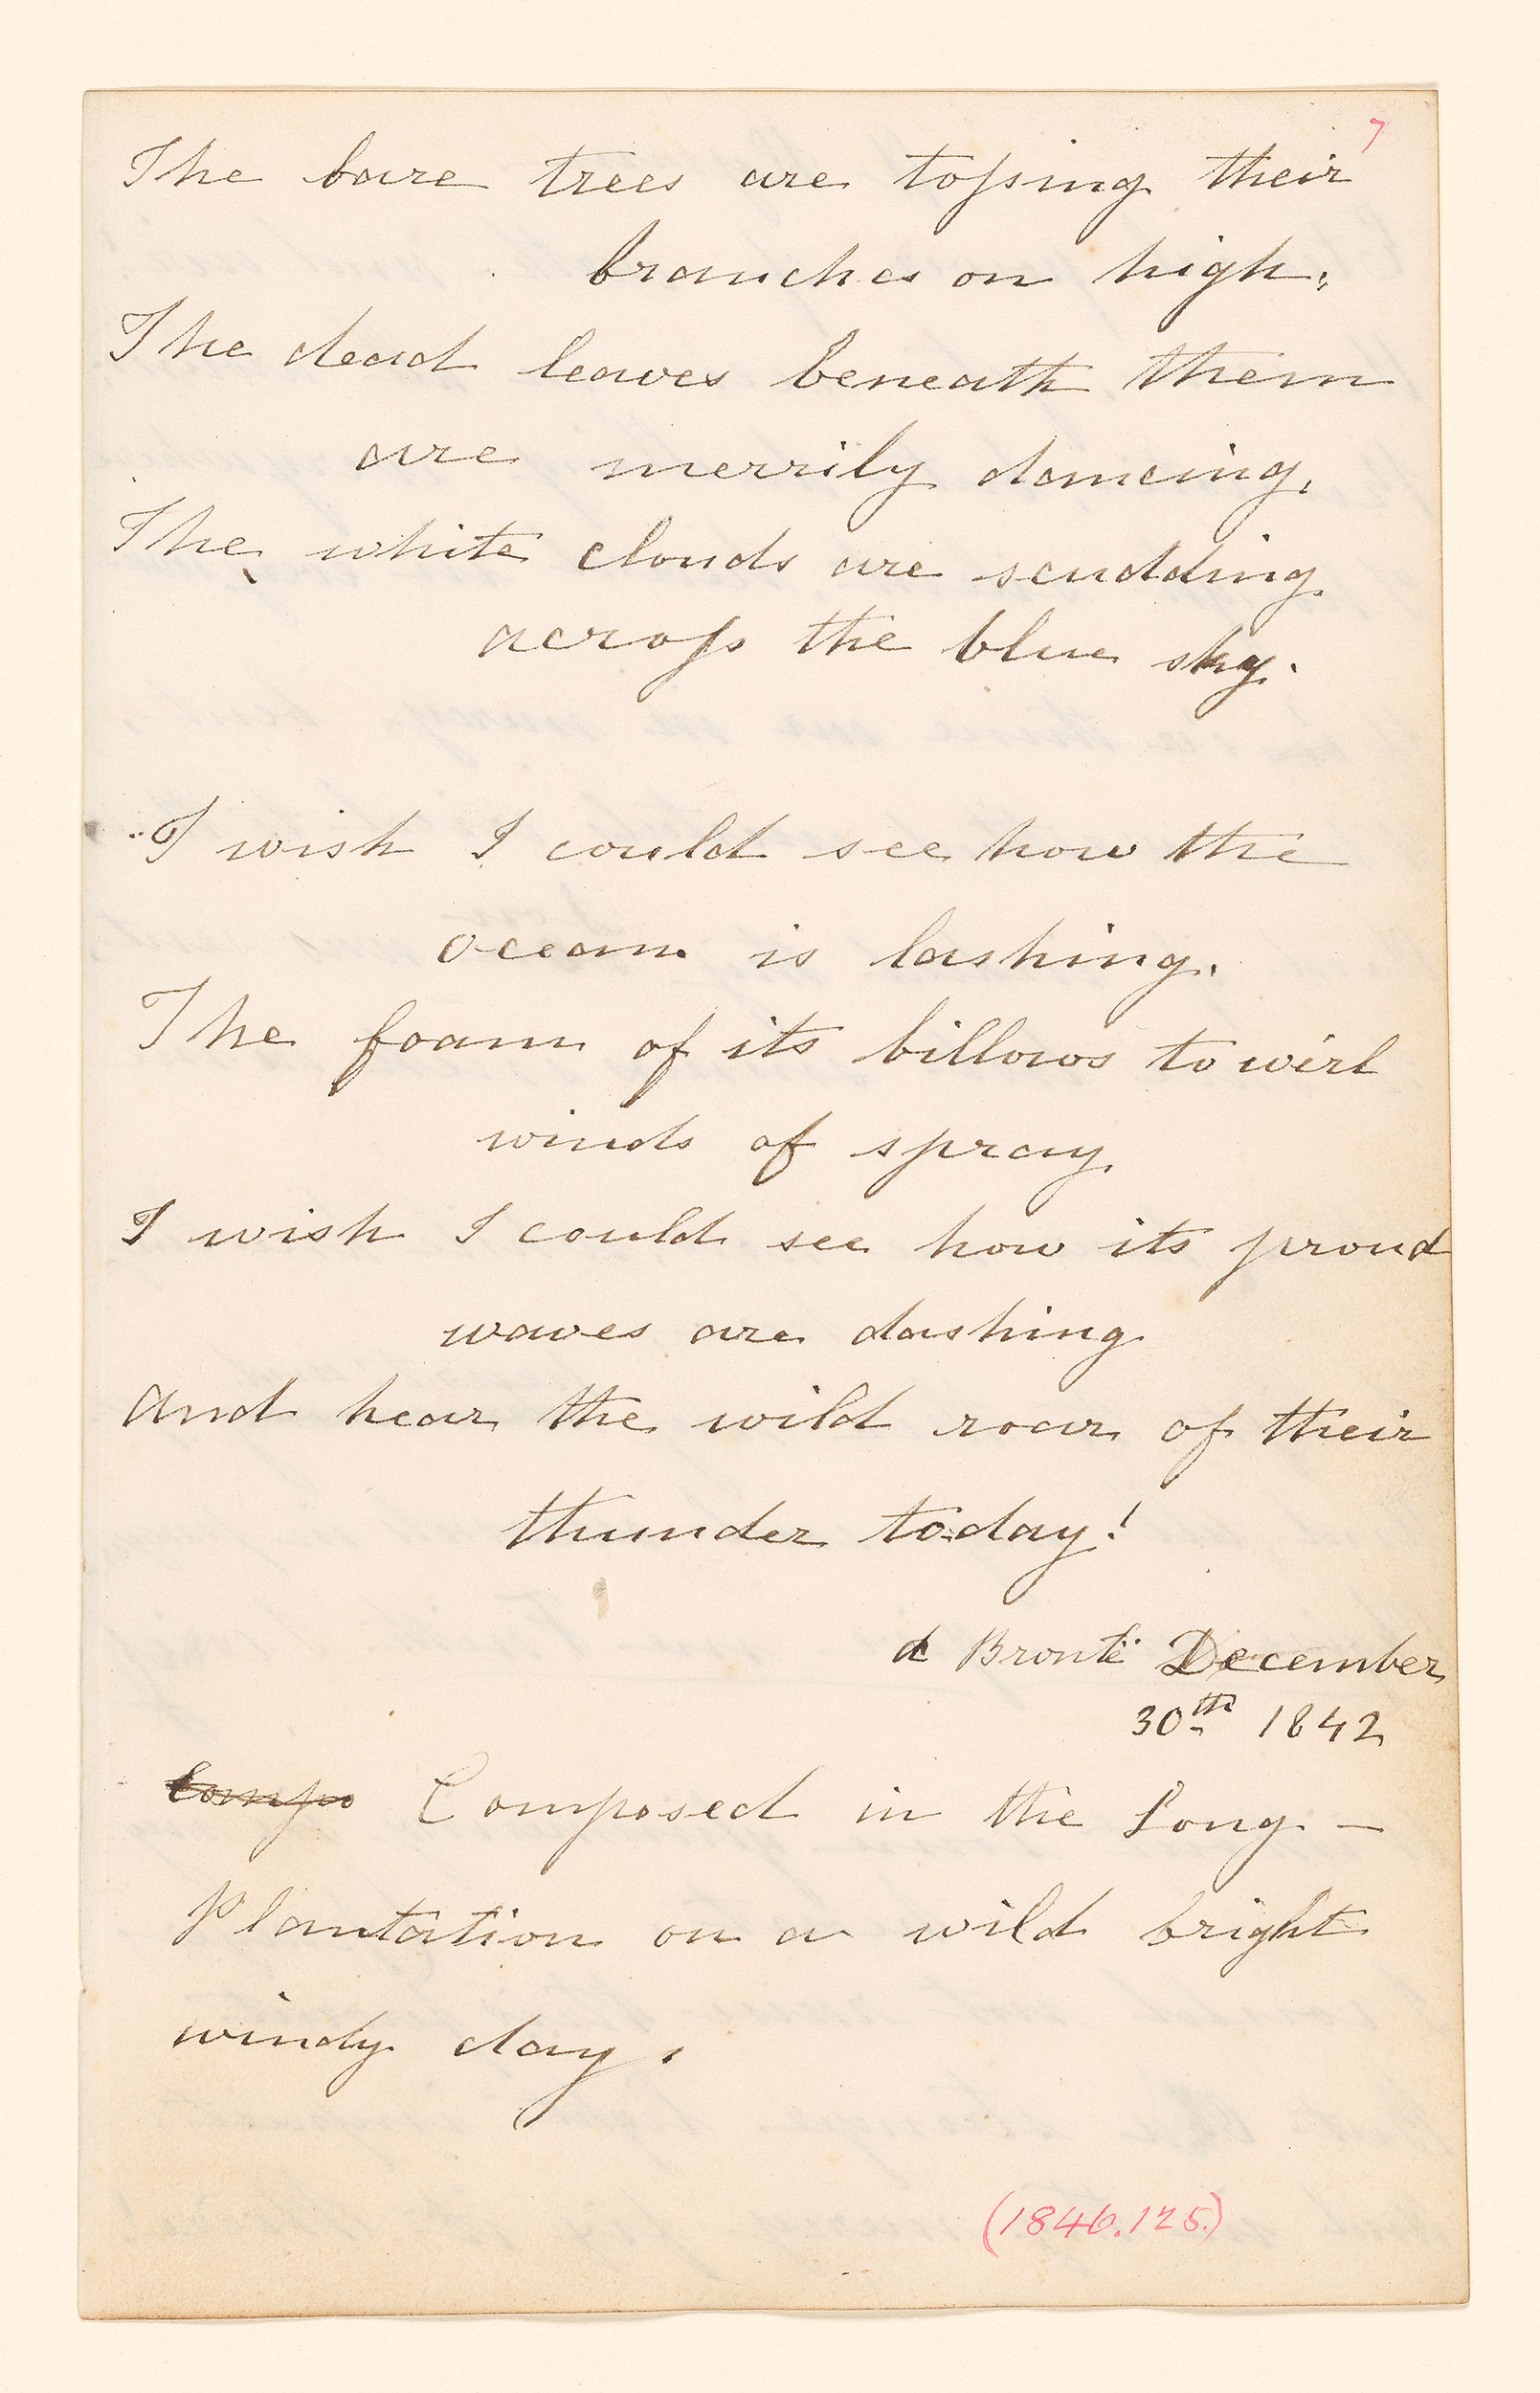 7
The bare trees are toſsing their
branches on high;
The dead leaves beneath them
are merrily dancing,
The white clouds are scudding
acroſs the blue sky.
I wish I could see how the
ocean is lashing,
The foam of its billows to wirl
winds of spray
I wish I could see how its proud
waves are dashing
and hear the wild roar of their
thunder today!
Brontë December
30th 1842
Compo Composed in the Long —
Plantation on a wild bright
windy day.
(1846.125.)